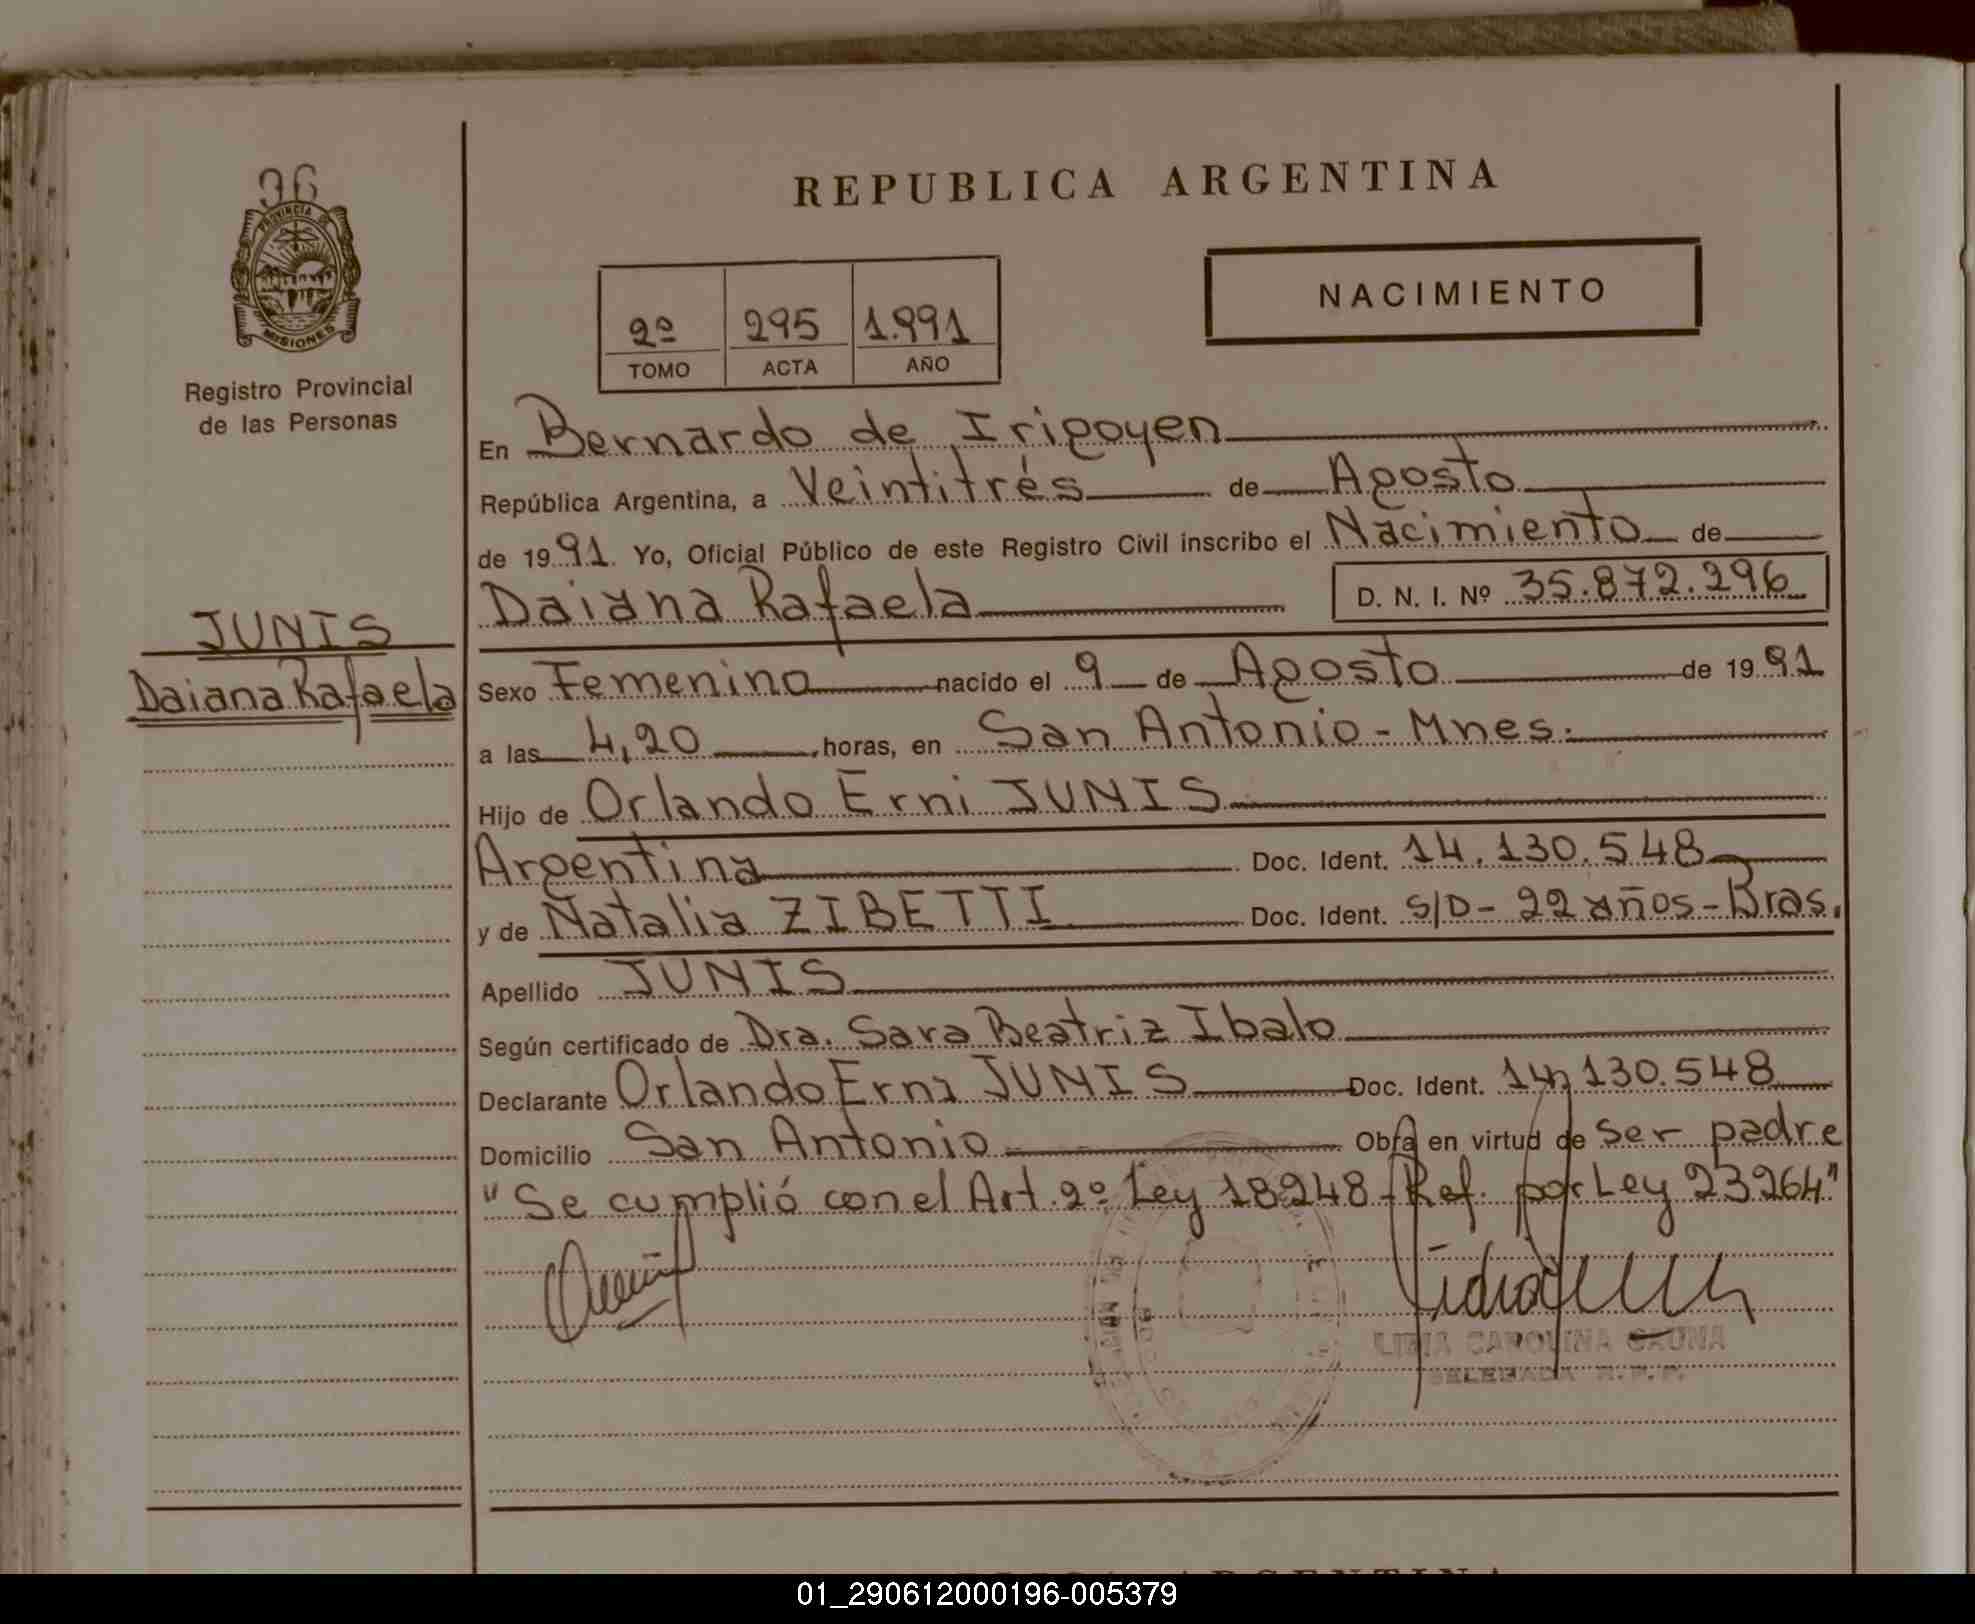 96
PROVINCIA DE
MISIONES
Registro Provincial
de las Personas
JUNIS
Daiana Rafaela
REPUBLICA ARGENTINA
2º 295 1.991
TOMO ACTA AÑO
NACIMIENTO
En Bernardo de Irigoyen
República Argentina, a Veintitrés de Agosto
de 1991. Yo, Oficial Público de este Registro Civil inscribo el Nacimiento de
Daiana Rafaela D. N. I. Nº 35.872.296
Sexo Femenino nacido el 9 de Agosto de 1991
a las 4,20 horas, en San Antonio - Mnes.
Hijo de Orlando Erni JUNIS
Argentina Doc. Ident. 14.130.548
y de Natalia ZIBETTI Doc. Ident. S/D - 22 años - Bras.
Apellido JUNIS
Según certificado de Dra. Sara Beatriz Ibalo
Declarante Orlando Erni JUNIS Doc. Ident. 14.130.548
Domicilio San Antonio Obra en virtud de ser padre
"Se cumplió con el Art. 2º Ley 18248 - Ref. por Ley 23264"
CAROLINA
DELEGADA R. P. P.
ARGENTINA
01_290612000196-005379